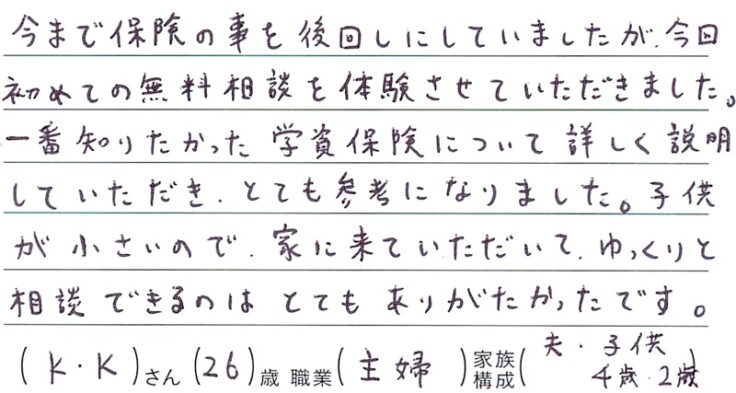 今まで保険の事を後回しにしていましたが、今回
初めての無料相談を体験させていただきました。
一番知りたかった学資保険について詳しく説明
していただき、とても参考になりました。子供
が小さいので、家に来ていただいて、ゆっくりと
相談できるのはとてもありがたかったです。
(K・K)さん(26)歳 職業(主婦)家族構成(夫・子供 4歳・2歳)